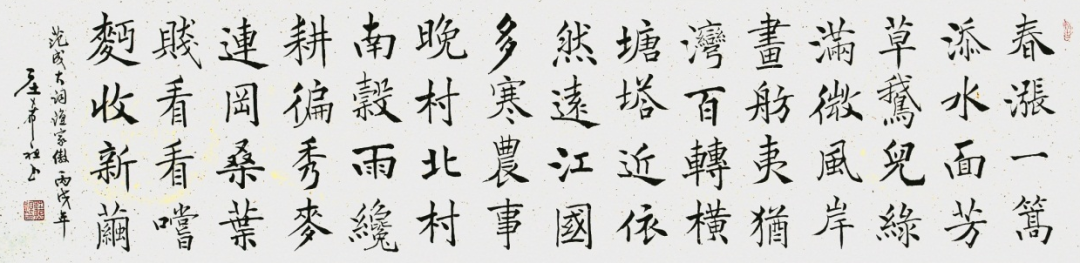 春漲一篙
添水面芳
草鵝兒綠
滿微風岸
畫舫夷猶
灣百轉橫
塘塔近依
然遠江國
多寒農事
晚村北村
南穀雨纔
耕徧秀麥
連岡桑葉
賤看看嚐
麪收新繭
范成大词渔家傲丙戌年